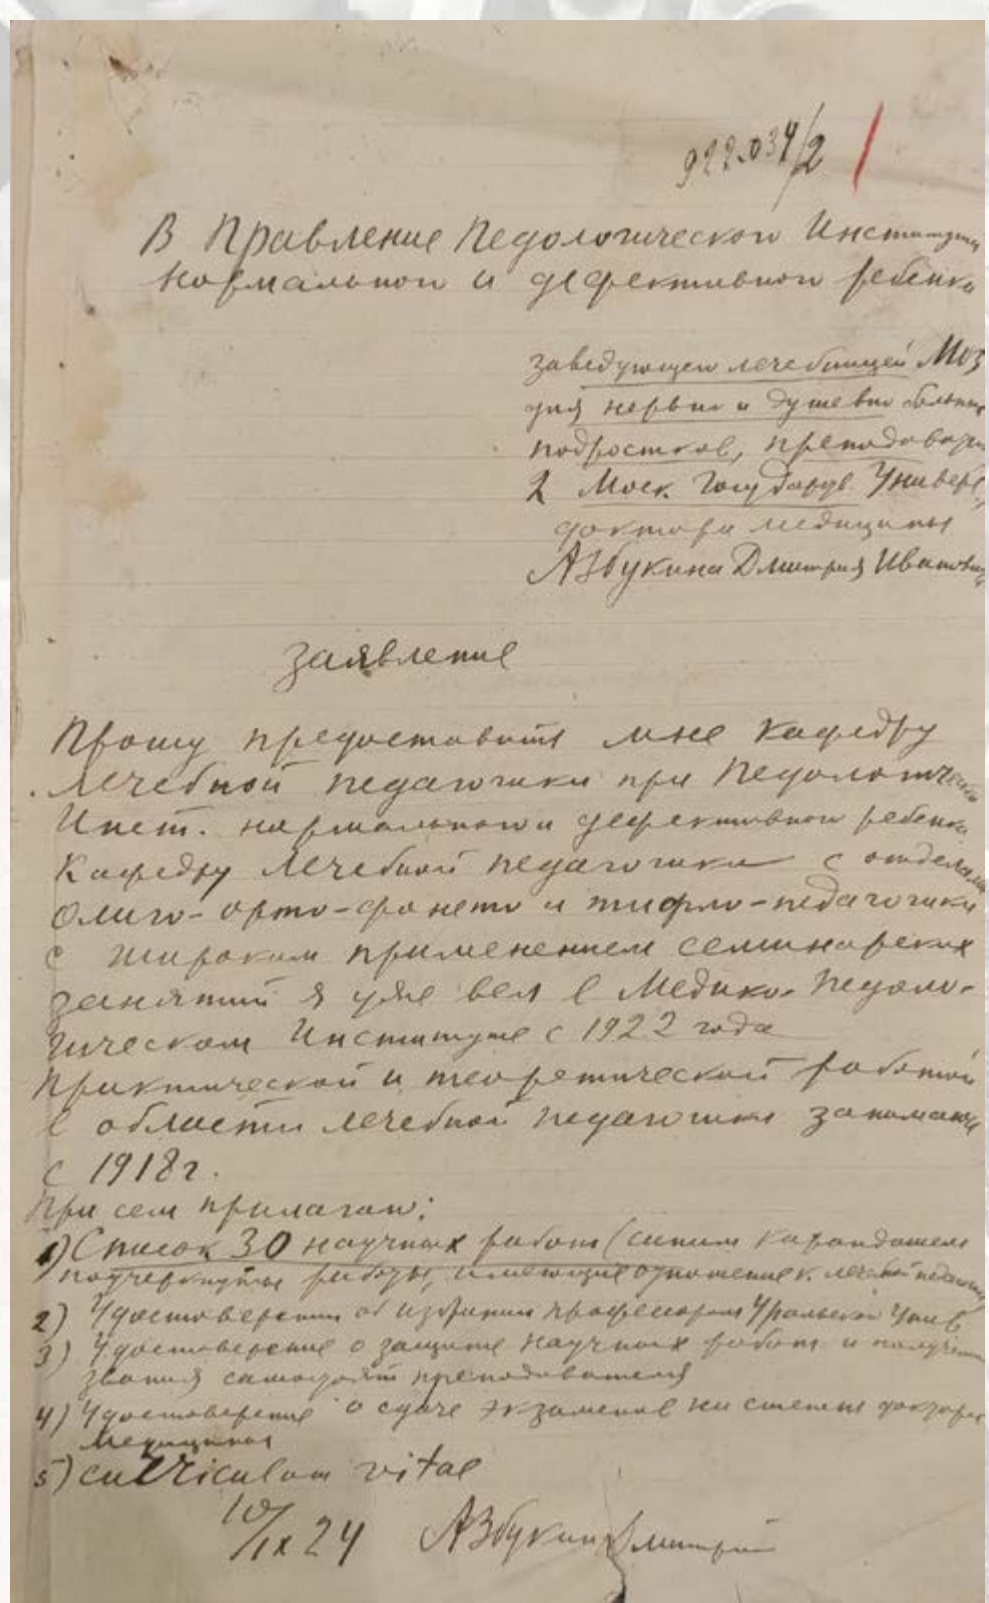 922.034/2
В Правление Педологического Института
нормального и дефективного ребенка
заведующего лечебницей МОЗ
для нервно и душевно больных
подростков, преподават
2 Моск. Государ. Универс.
доктора медицины
Азбукина Дмитрия Ивановича
Заявление
Прошу предоставить мне кафедру
лечебной педагогики при Педологическ
Инст. нормального и дефективного ребенка
Кафедру лечебной педагогики с отделами
Олиго-орто-фонето и тифло-педагогики
с широким применением семинарских
занятий я уже вел в Медико-Педоло-
гическом Институте с 1922 года
Практической и теоретической работой
в области лечебной педагогики занимаюсь
с 1918 г.
При сем прилагаю:
1) Список 30 научных работ (синим карандашем
подчеркнуты работы, имеющие отношение к лечебной педагог
2) Удостоверение об избрании профессором Уральского Унив
3) Удостоверение о защите научных работ и получении
звания самостоят преподавателя
4) Удостоверение о сдаче экзаменов на степень доктора
медицины
5) curriculum vitae
10/IX 24 Азбукин Дмитрий